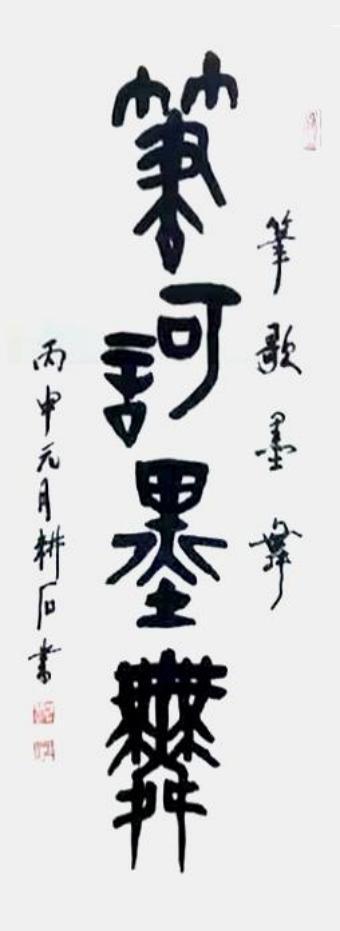 筆歌墨舞
筆訶墨舞
丙申元月耕石書